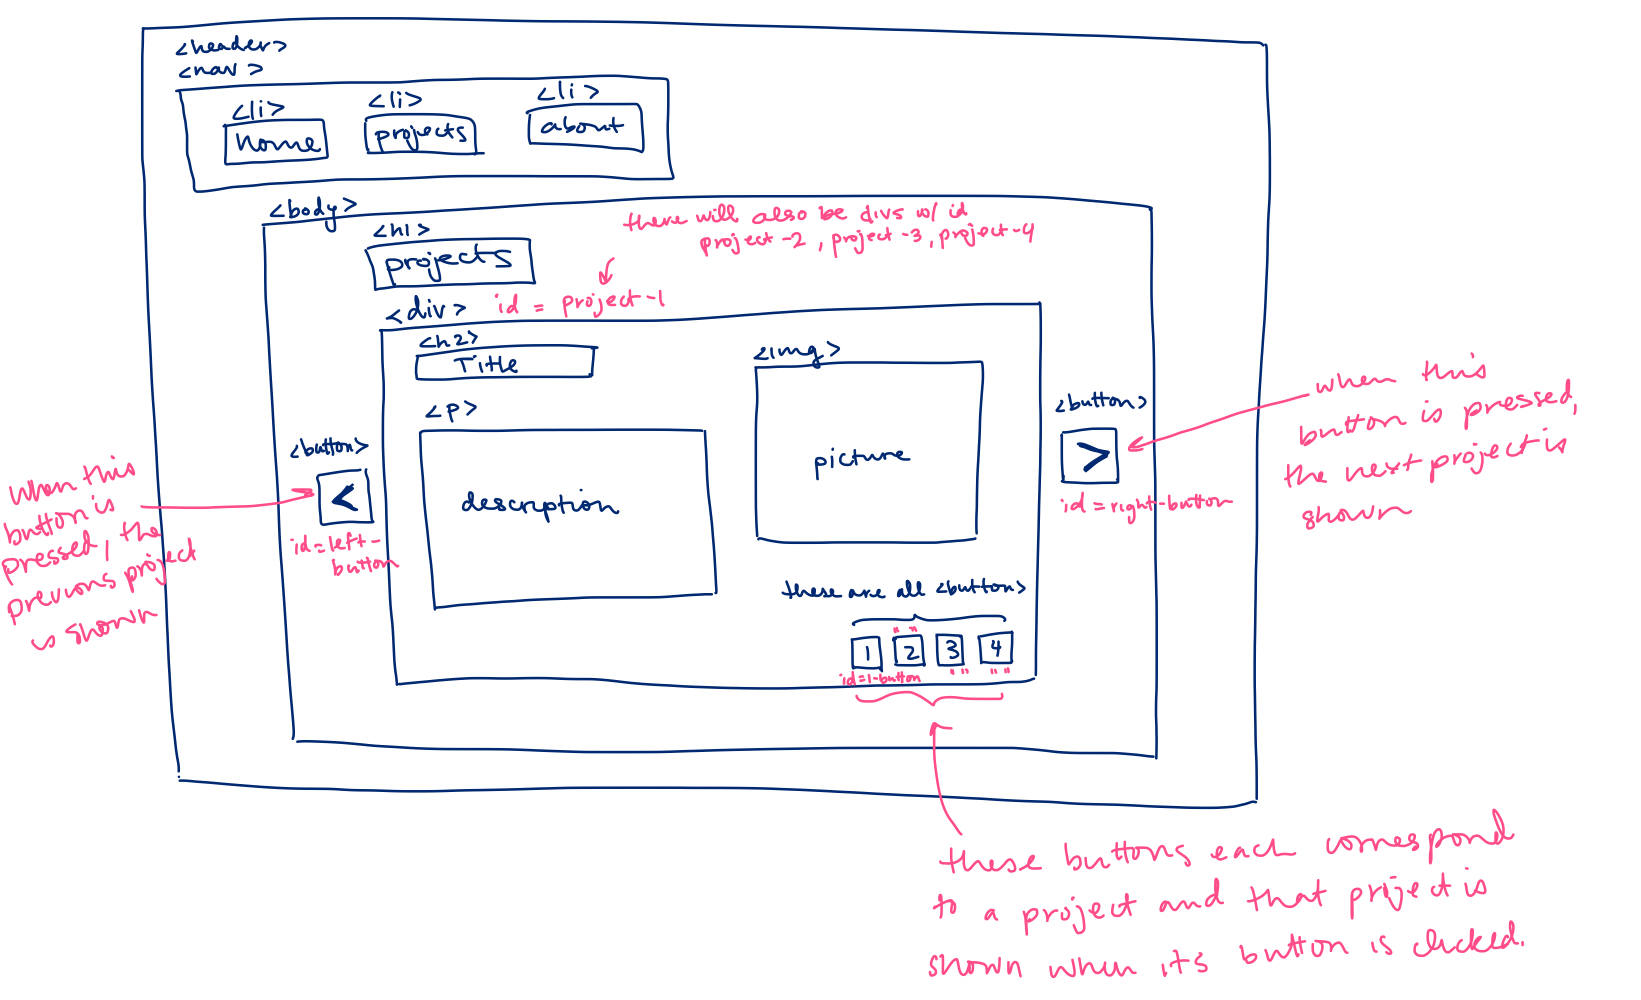 <header>
<nav>
<li>
home
<li>
projects
<li>
about
<body>
<h1>
projects
there will also be divs w/ id
project-2, project-3, project-4
<div> id = project-1
<h2>
Title
<p>
description
<img>
picture
<button>
<
id=left-
button
when this
button is
pressed, the
previous project
is shown
<button>
>
id=right-button
when this
button is pressed,
the next project is
shown
these are all <button>
" "
1 2 3 4
id=1-button " " " "
these buttons each correspond
to a project and that project is
shown when its button is clicked.